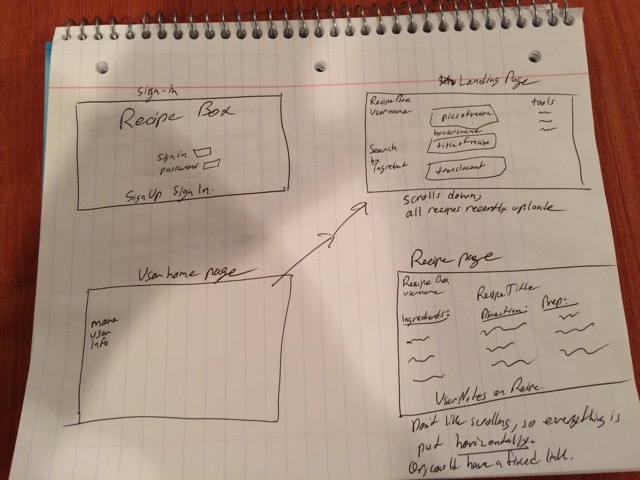 Sign-In
Recipe Box
Sign in
password
Sign Up Sign In.
Landing Page
Recipe Box
Username
pics of recipe
by username
title of recipe
translucent
Search
by
Ingredient
tools
scrolls down,
all recipes recently uploade
User home page
more
user
Info
Recipe page
Recipe Box
username
Recipe Title
Ingredients:
Direction:
Prep:
User Notes on Recipe.
Don't like scrolling, so everything is
put horizontally.
Or, could have a fixed link.